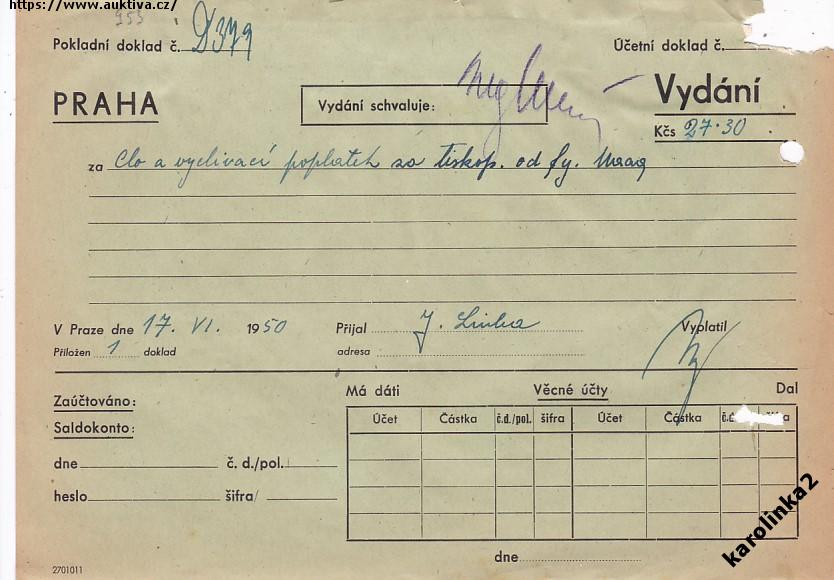 https://www.auktiva.cz/
953
Pokladní doklad č. D379
Účetní doklad č.
PRAHA
Vydání schvaluje:
Vydání
Kčs 27·30
za Clo a vyclívací poplatek za tiskop. od fy. Maag
V Praze dne 17. VI. 1950
Přijal J. Linka
Vyplatil
Přiložen 1 doklad
adresa
Má dáti Věcné účty Dal
Zaúčtováno:
Účet Částka č.d./pol. šifra Účet Částka č.d.
Saldokonto:
dne č. d./pol.
heslo šifra
dne
2701011
karolinka2